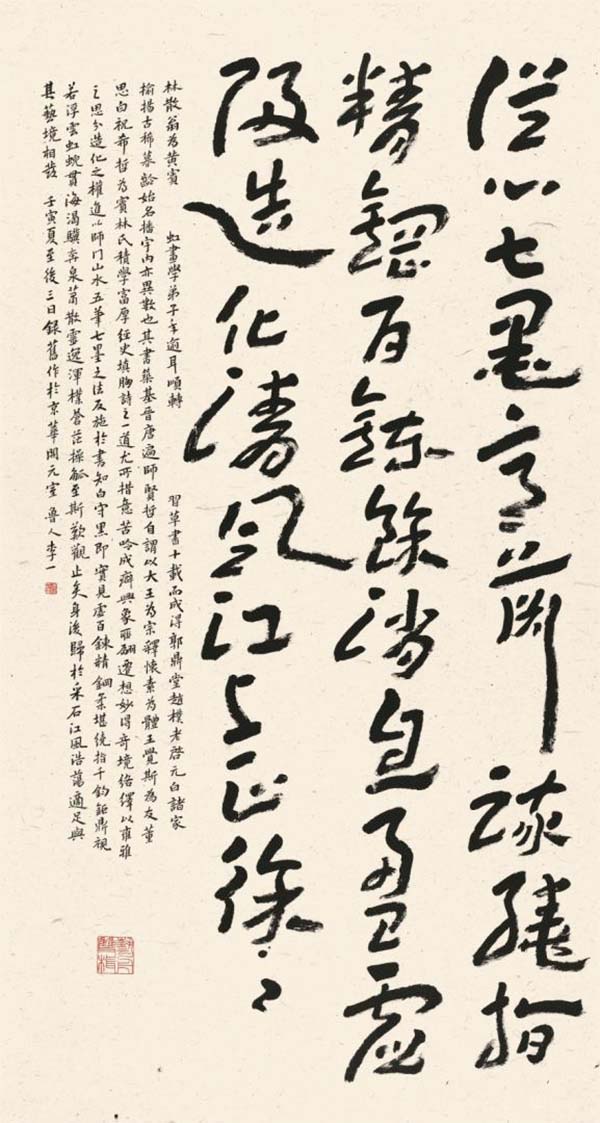 從心七墨蕭疎繞指
精鋼百鍊餘消息盈虛
造化清風江上正徐〻
林散翁為黃賓虹畫學弟子年逾耳順轉習草書十載而成得郭鼎堂趙樸老啓元白諸家
揄揚古稀暮齡始名播宇內亦異數也其書築基晉唐遍師賢哲自謂以大王為宗釋懷素為體王覺斯為友董
思白祝希哲為賓林氏積學富厚經史填胸詩之一道尤所措意苦吟成癖興象翩遷想妙得奇境絡繹以雍雅
之思分造化之權進以師門山水五筆七墨之法反施於書知白守黑即實見虛百鍊精鋼柔堪繞指千鈞鉅鼎視
若浮雲虹蜺貫海渴驥奔泉蕭散靈逸渾樸蒼茫操觚至斯歎觀止矣身後歸於采石江風浩蕩適足與
其藝境相發 壬寅夏至後三日錄舊作於京華開元室魯人李一